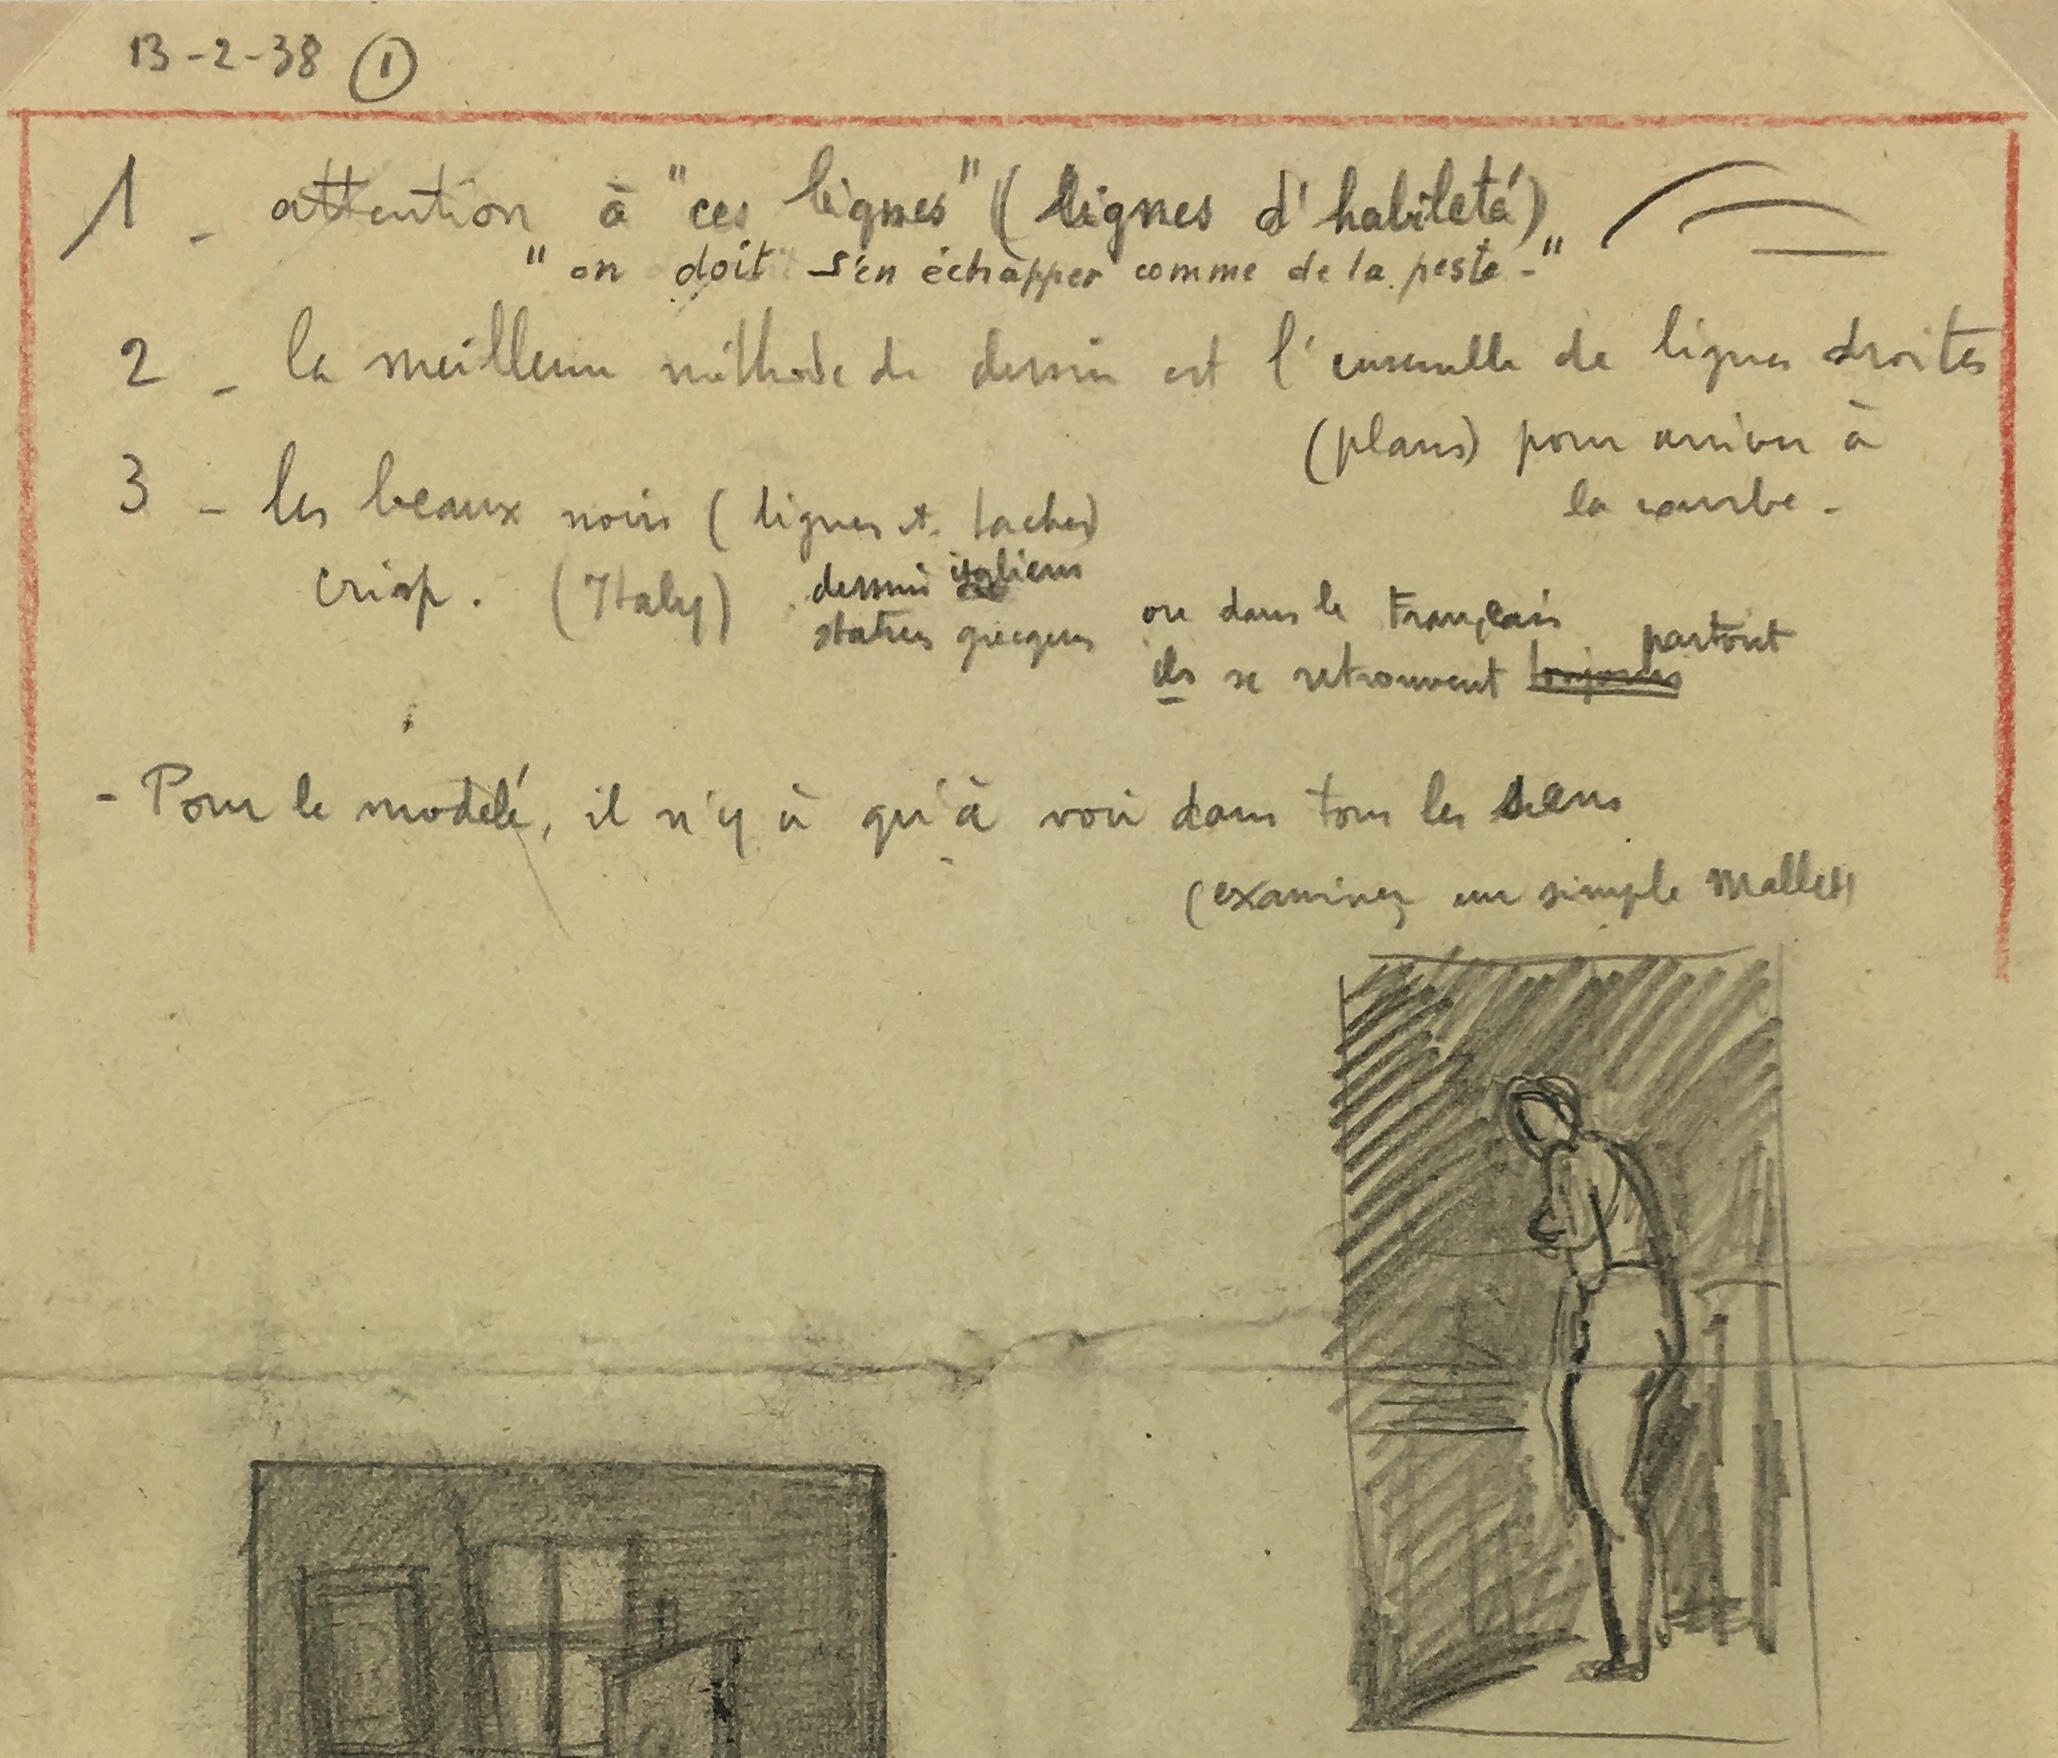 13-2-38 ①
1 - attention à "ces lignes" (lignes d'habileté)
"on doit s'en échapper comme de la peste-"
2 - la meilleure méthode de dessin est l'ensemble de lignes droites
(plans) pour arriver à
la courbe -
3 - les beaux noirs (lignes et taches)
crisp. (Italy) dessins italiens
statues grecques
ou dans le Français
ils se retrouvent toujours partout
- Pour le modelé, il n'y à qu'à voir dans tous les sens
(examinez un simple mollet)